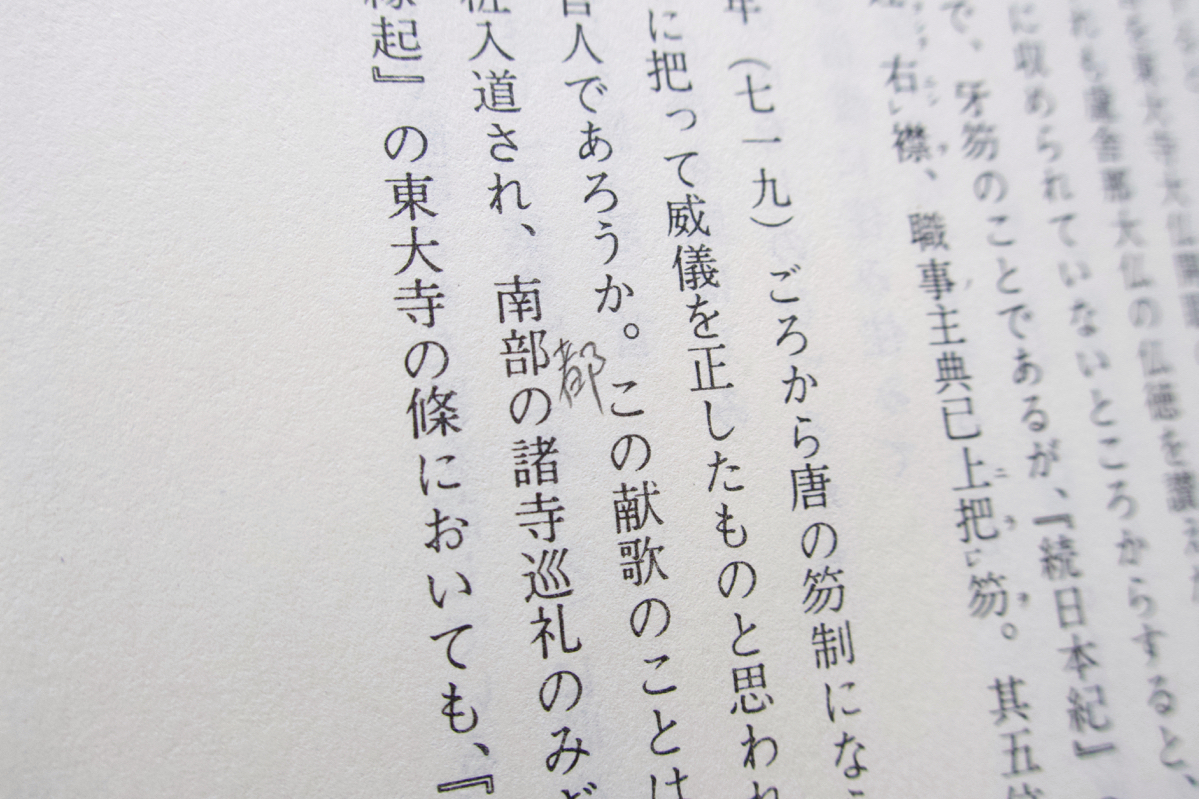 を東大寺大仏開眼
れも盧舎那大仏の仏徳を讃え
に収められていないところからすると、
で、牙笏のことであるが、『続日本紀』
右レ襟、職事主典已上把レ笏。其五
年（七一九）ごろから唐の笏制にな
に把って威儀を正したものと思われ
人であろうか。この献歌のことは
都
佐入道され、南部の諸寺巡礼のみぎ
縁起』の東大寺の條においても、『